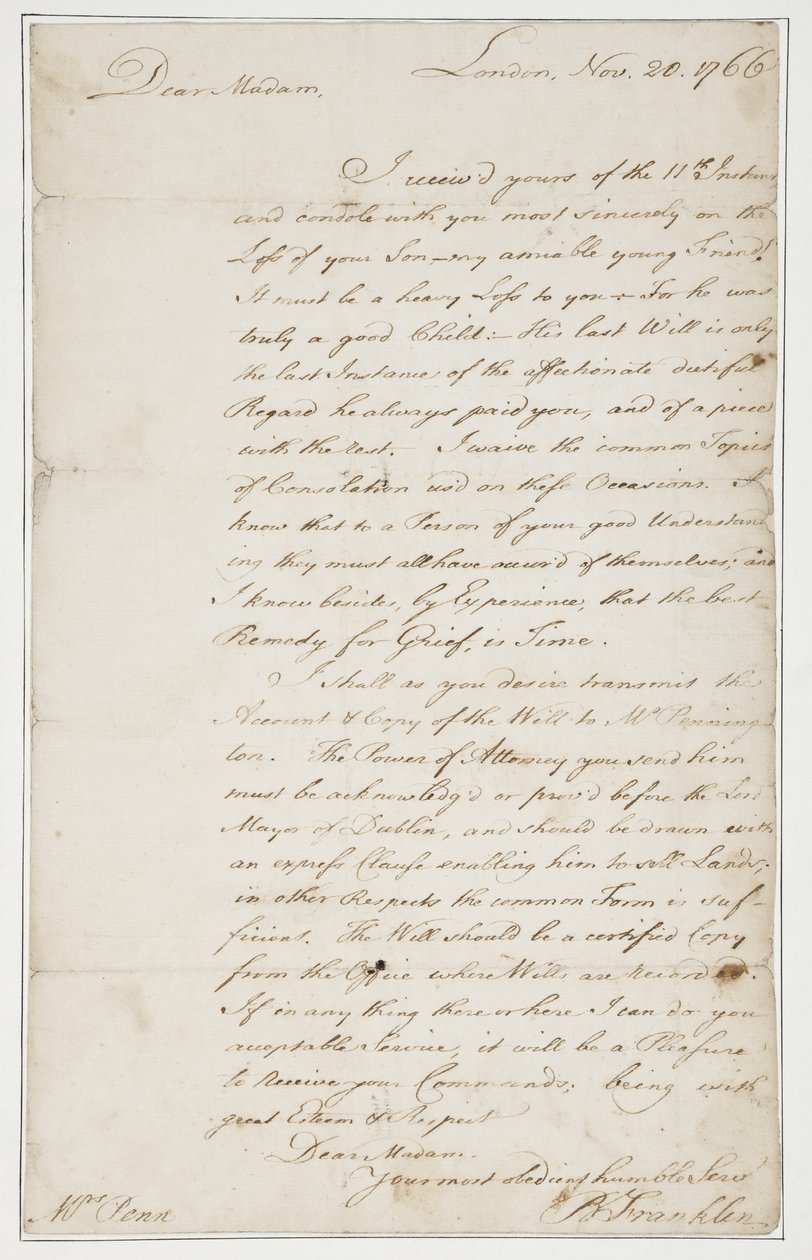 London, Nov. 20. 1766
Dear Madam,
I receiv'd yours of the 11th Instant
and condole with you most sincerely on the
Loss of your Son—my amiable young Friend!
It must be a heavy Loss to you — For he was
truly a good Child:— His last Will is only
the last Instance of the affectionate dutiful
Regard he always paid you, and of a piece
with the rest.— I waive the common Topics
of Consolation us'd on these Occasions. I
know that to a Person of your good Understand
ing they must all have occur'd of themselves; and
I know besides, by Experience, that the best
Remedy for Grief, is Time.
I shall as you desire transmit the
Account & Copy of the Will to Mr Pening
ton. The Power of Attorney you send him
must be acknowledg'd or prov'd before the Lord
Mayor of Dublin, and should be drawn with
an express Clause enabling him to sell Lands;
in other Respects the common Form is suf-
ficient. The Will should be a certified Copy
from the Office where Wills are recorded.
If in any thing there or here I can do you
acceptable Service, it will be a Pleasure
to receive your Commands; being with
great Esteem & Respect
Dear Madam.
Your most obedient humble Servt
B Franklin
Mrs Penn